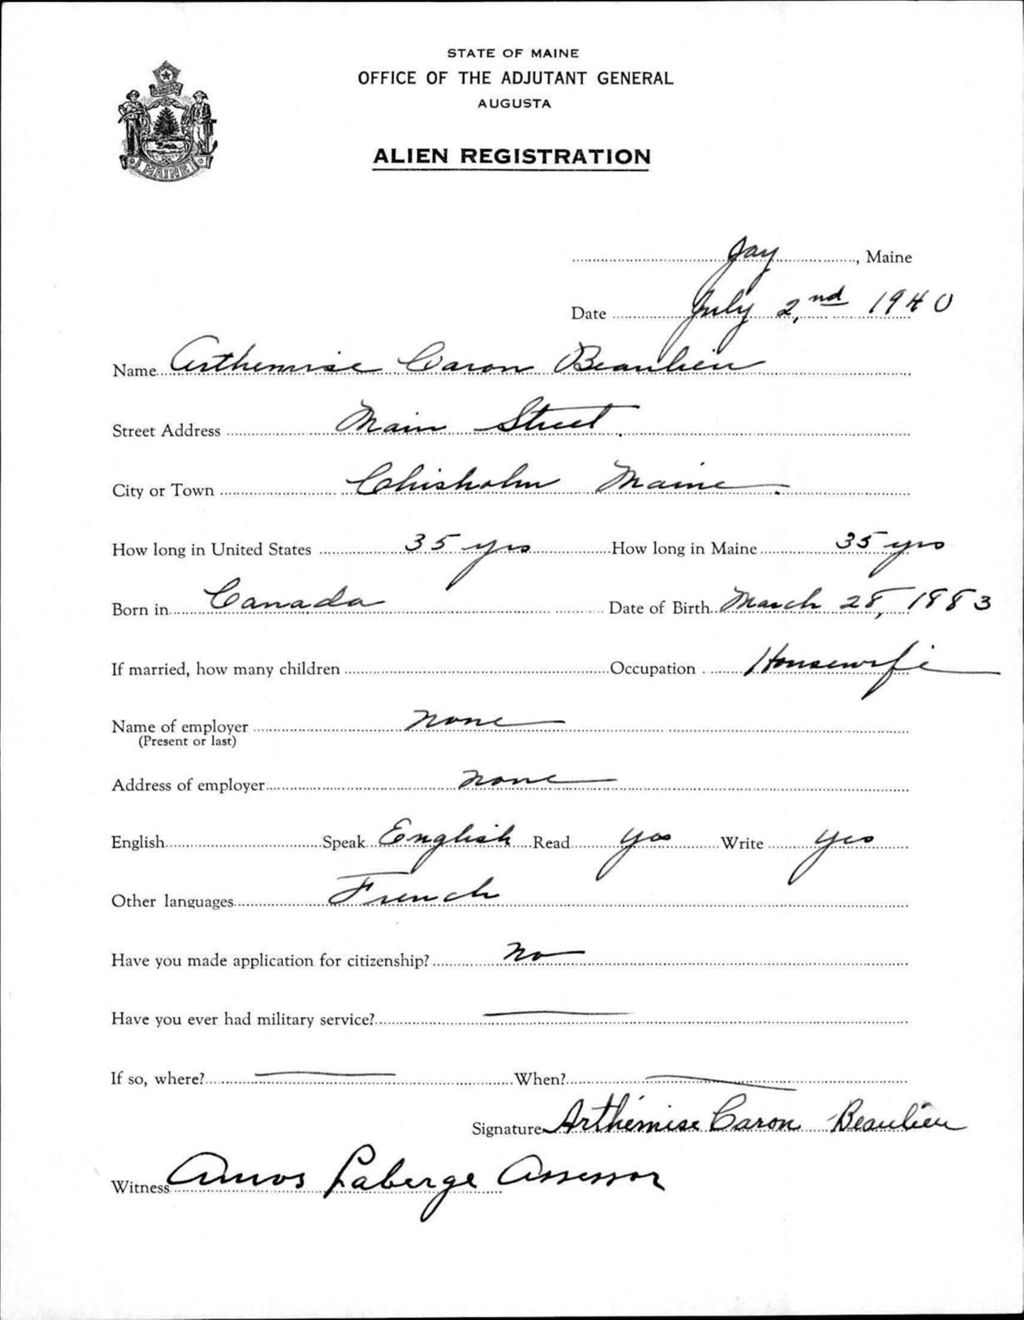 STATE OF MAINE
OFFICE OF THE ADJUTANT GENERAL
AUGUSTA
ALIEN REGISTRATION
MAINE
Jay, Maine
Date July 2, nd 1940
Name Arthemise Caron Beaulieu
Street Address Main Street.
City or Town Chisholm Maine.
How long in United States 35 yrs How long in Maine 35 yrs
Born in Canada Date of Birth March 28, 1883
If married, how many children Occupation Housewife
Name of employer none
(Present or last)
Address of employer none
English Speak English Read yes Write yes
Other languages French
Have you made application for citizenship? no
Have you ever had military service? —
If so, where? — When? —
Signature Arthémise Caron Beaulieu
Witness Amos Laberge Assessor